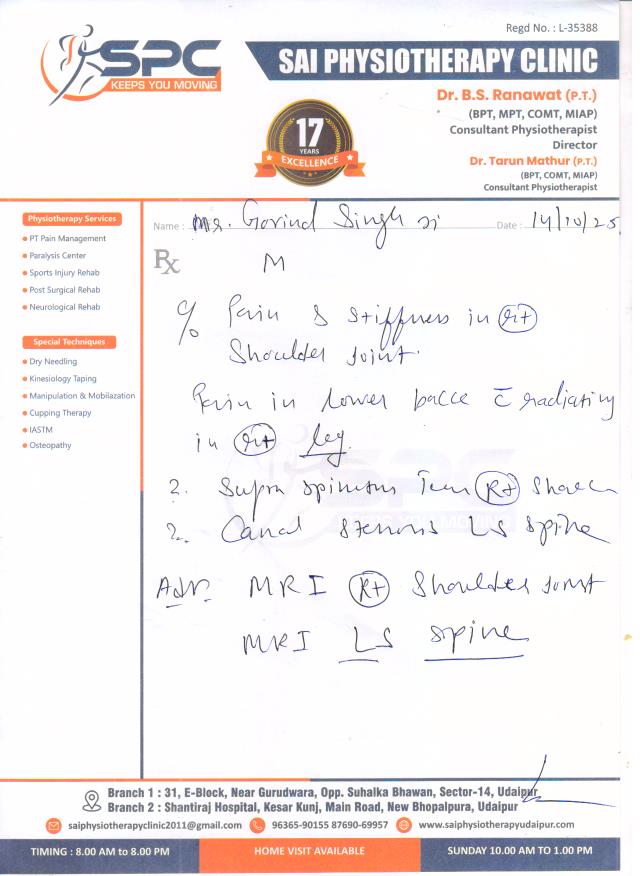 Regd No. : L-35388
SPC
KEEPS YOU MOVING
SAI PHYSIOTHERAPY CLINIC
17
YEARS
EXCELLENCE
Dr. B.S. Ranawat (P.T.)
(BPT, MPT, COMT, MIAP)
Consultant Physiotherapist
Director
Dr. Tarun Mathur (P.T.)
(BPT, COMT, MIAP)
Consultant Physiotherapist
Physiotherapy Services
PT Pain Management
Paralysis Center
Sports Injury Rehab
Post Surgical Rehab
Neurological Rehab
Special Techniques
Dry Needling
Kinesiology Taping
Manipulation & Mobilazation
Cupping Therapy
IASTM
Osteopathy
Name : Mr. Govind Singh Ji Date : 14/10/25
Rx M
c/o Pain & Stiffness in Rt
Shoulder Joint.
Pain in Lower back c̄ radiating
in Rt leg.
?. Supra spinatus Tear Rt
?. Canal Stenosis LS Spine
Adv. MRI Rt Shoulder Joint
MRI LS Spine
SPC
KEEPS YOU MOVING
Branch 1 : 31, E-Block, Near Gurudwara, Opp. Suhalka Bhawan, Sector-14, Udaipur
Branch 2 : Shantiraj Hospital, Kesar Kunj, Main Road, New Bhopalpura, Udaipur
saiphysiotherapyclinic2011@gmail.com 96365-90155 87690-69957 www.saiphysiotherapyudaipur.com
TIMING : 8.00 AM to 8.00 PM HOME VISIT AVAILABLE SUNDAY 10.00 AM TO 1.00 PM